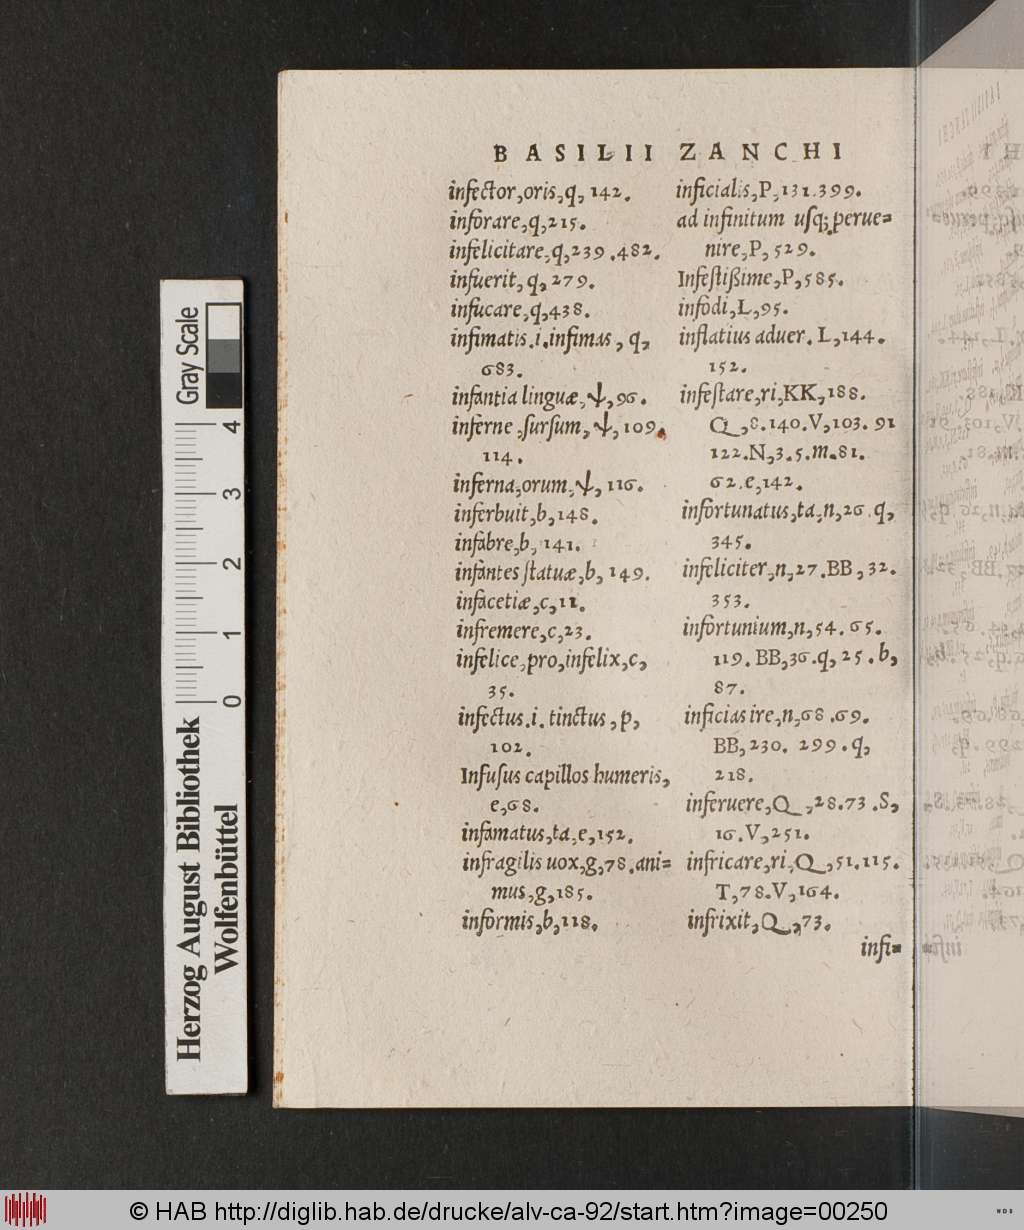 BASILII ZANCHI
infector,oris,q, 142.
inforare,q,215.
infelicitare,q,239.482.
infuerit, q, 279.
infucare,q,438.
infimatis.i.infimas, q,
683.
infantia linguæ,ψ,96.
inferne,sursum,ψ,109.
114.
inferna,orum,ψ,116.
inferbuit,b,148.
infabre,b,141.
infantes statuæ,b, 149.
infacetiæ,c,11.
infremere,c,23.
infelice,pro,infelix,c,
35.
infectus.i. tinctus, p,
102.
Infusus capillos humeris,
e,68.
infamatus,ta,e,152.
infragilis uox,g,78.ani=
mus,g,185.
informis,b,118.
inficialis,P,131.399.
ad infinitum usq; perue=
nire,P,529.
Infestißime,P,585.
infodi,L,95.
inflatius aduer. L,144.
152.
infestare,ri,KK,188.
Q,8.140.V,103.91
122.N,3.5.m.81.
62.e,142.
infortunatus,ta,n,26.q,
345.
infeliciter,n,27.BB,32.
353.
infortunium,n,54.65.
119.BB,36.q,25.b,
87.
inficias ire,n,68.69.
BB,230. 299.q,
218.
inferuere,Q,28.73.S,
16.V,251.
infricare,ri,Q,51.115.
T,78.V,164.
infrixit,Q,73.
infi=
Gray Scale
0 1 2 3 4
Herzog August Bibliothek
Wolfenbüttel
© HAB http://diglib.hab.de/drucke/alv-ca-92/start.htm?image=00250